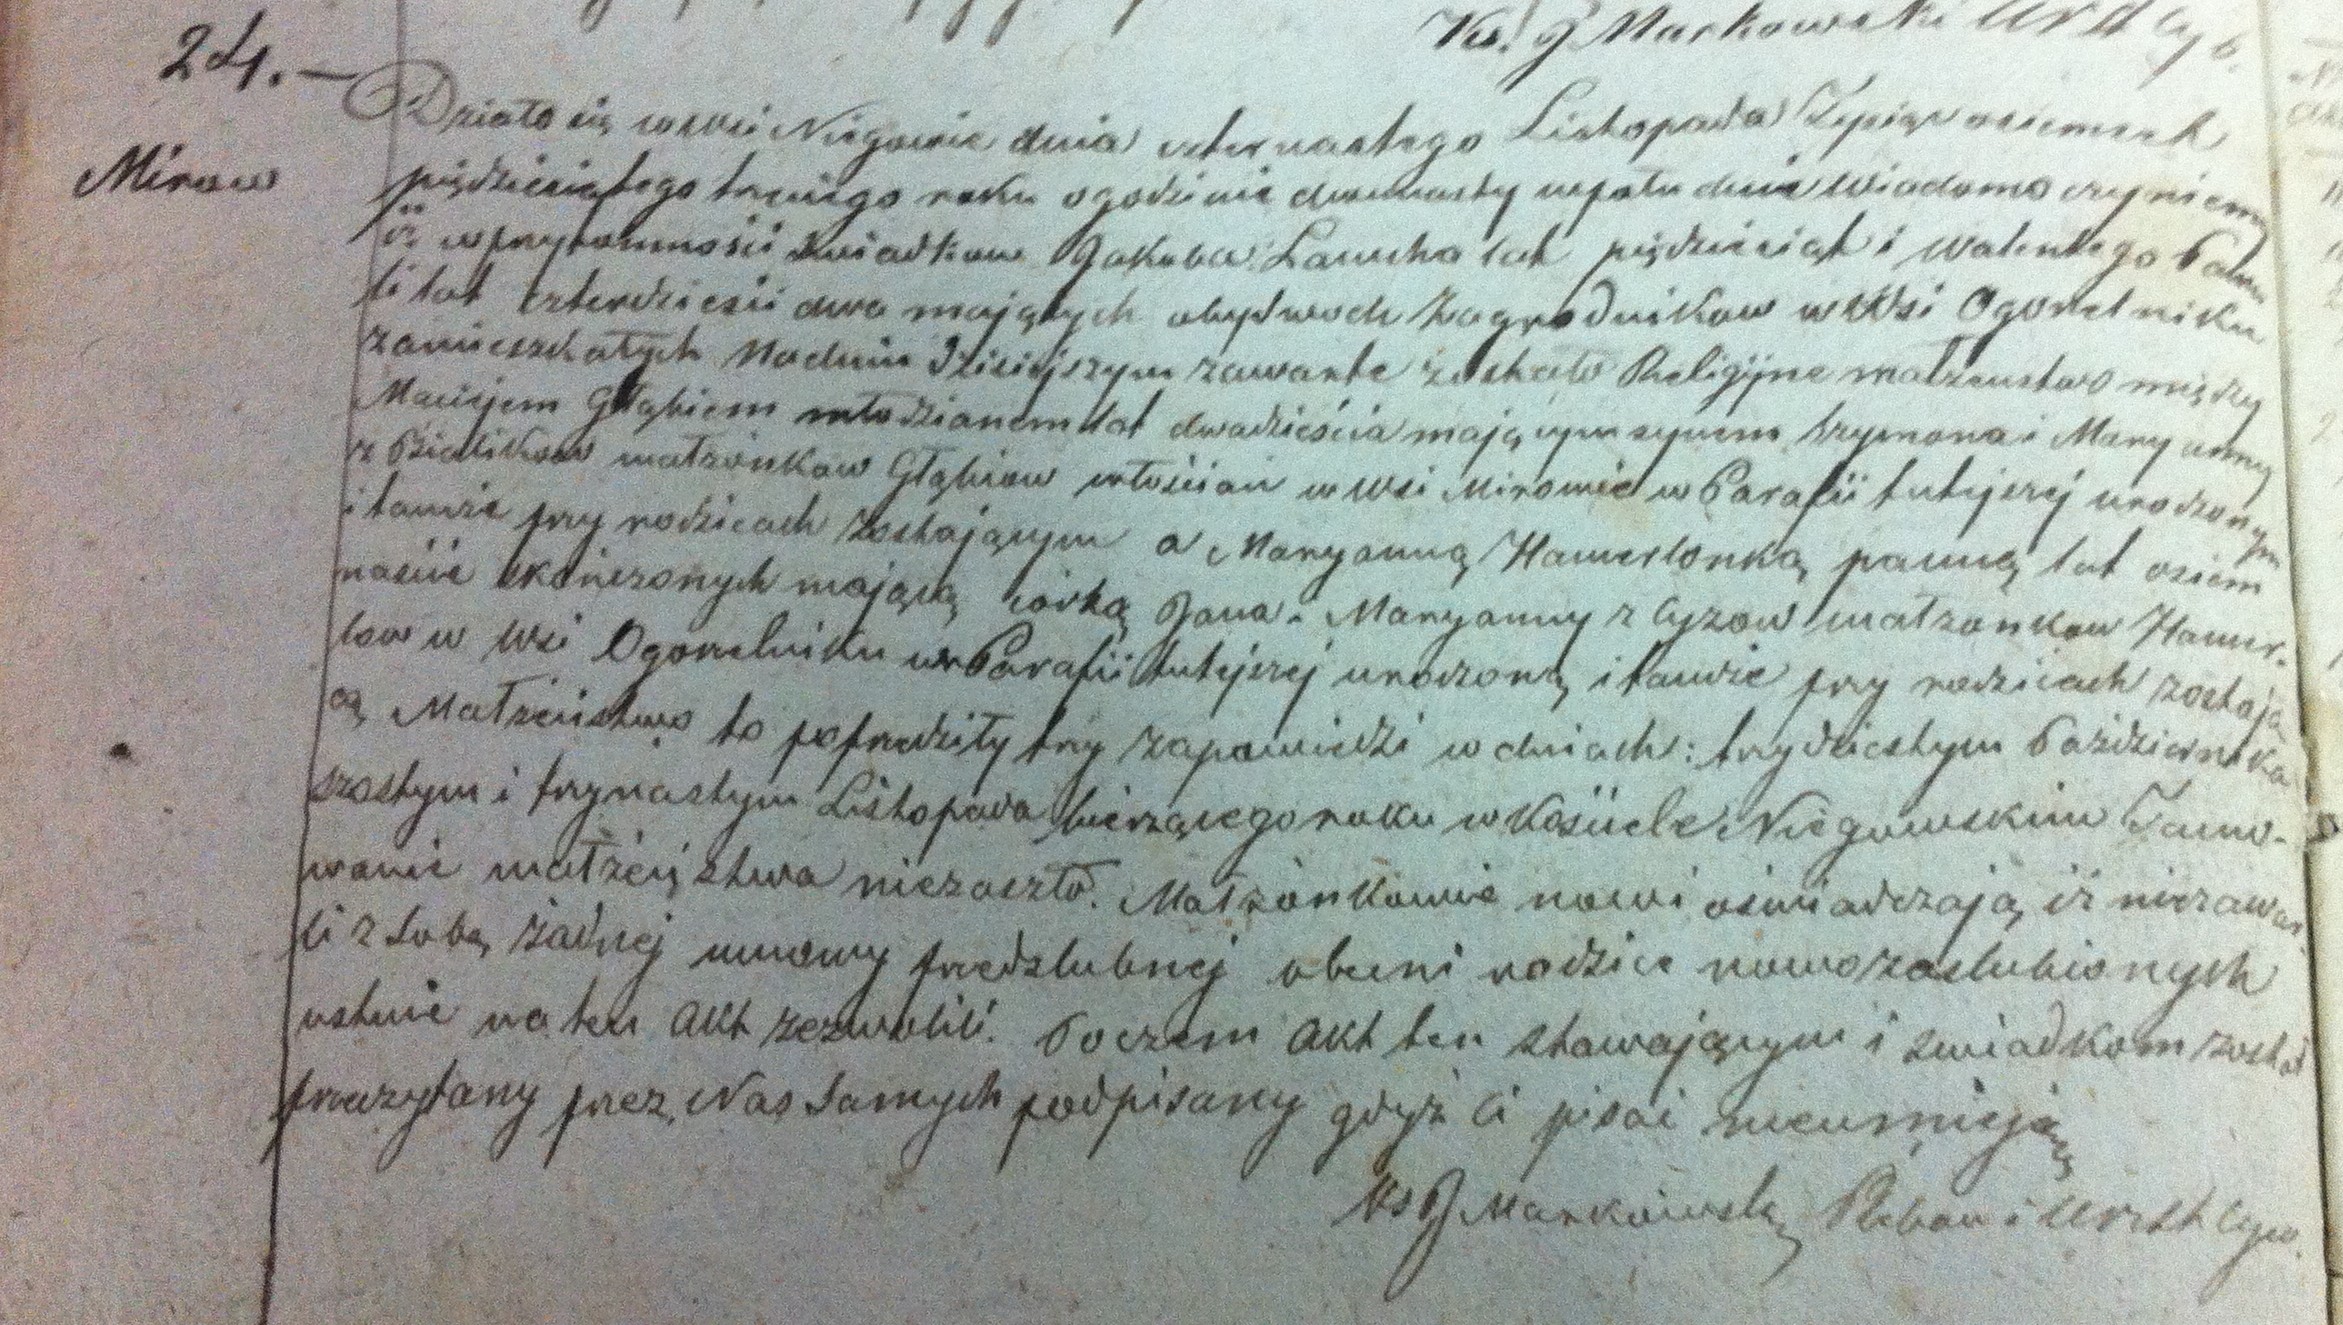 Ks. J Markowski Urz Cyw.
24. —
Mirow
Działo się w wsi Niegowie dnia czternastego Listopada Tysiąc osiemset
pięćdziesiątego trzeciego roku o godzinie dwunasty w połu dnia Wiadomo czyniemy
iż w przytomności Swiadkow Jakoba Laucha lat pięćdziesiąt i Walentego
li lat czterdzieści dwa mających obydwoch Zagrodnikow w Wsi Ogorzelniku
zamieszkałych Na dniu Dzisiejszym zawarte zostało Religijne małzenstwo między
Maciejem Głąbiem młodzianem lat dwadzieścia mającym synem Szymona i Maryanny
z Bialikow małzonkow Głąbiow włościan w Wsi Mirowie w Parafii tutejszej urodzonym
i tamże przy rodzicach zostającym a Maryanną Hamerlonką panną lat osiem
naście skończonych mającą corką Jana i Maryanny z Cyzow małzonkow Hamer-
low w Wsi Ogorzelniku w Parafii tutejszej urodzoną i tamże przy rodzicach zostają
cą Małżeństwo to poprzedziły trzy zapowiedzi w dniach: trzydziestym Października
szostym i trzynastym Listopada bierzącego roku w Kościele Niegowskim Tamo-
wanie małżeństwa niezaszło. Małżonkowie nowi oświadczają iż niezawar-
li z Sobą żadnej umowy przedslubnej obecni rodzice nowozaslubionych
ustnie na ten Akt zezwolili. Poczem Akt ten stawającym i swiadkom został
przeczytany przez Nas Samych podpisany gdyż Ci pisac nieumieją
Ks J Markowski Pleban i Urz St Cyw.